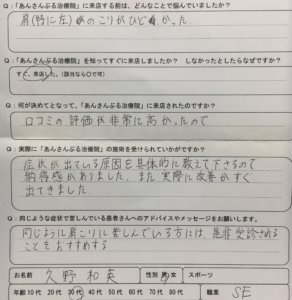 Q：「あんさんぶる治療院」に来店する前は、どんなことで悩んでいましたか？
肩(特に左)のこりがひどかった．
Q：「あんさんぶる治療院」を知ってすぐに来店しましたか？　しなかったとしたらなぜですか？
すぐ、来店した。（該当なら○で可）
Q：何が決めてとなって、「あんさんぶる治療院」に来店されたのですか？
口コミの評価が非常に高かったので
Q：実際に「あんさんぶる治療院」の施術を受けられていかがですか？
症状が出ている原因を具体的に教えて下さるので
納得感がありました．また実際に改善がすぐ
出てきました．
Q：同じような症状で苦しんでいる患者さんへのアドバイスやメッセージをお願いします。
同じように肩こりに苦しんでいる方には、是非受診される
ことをおすすめする
お名前 久野 和英 性別 男・女 スポーツ
年齢 10代 20代 30代 40代 50代 60代 70代 80代 職業 SE